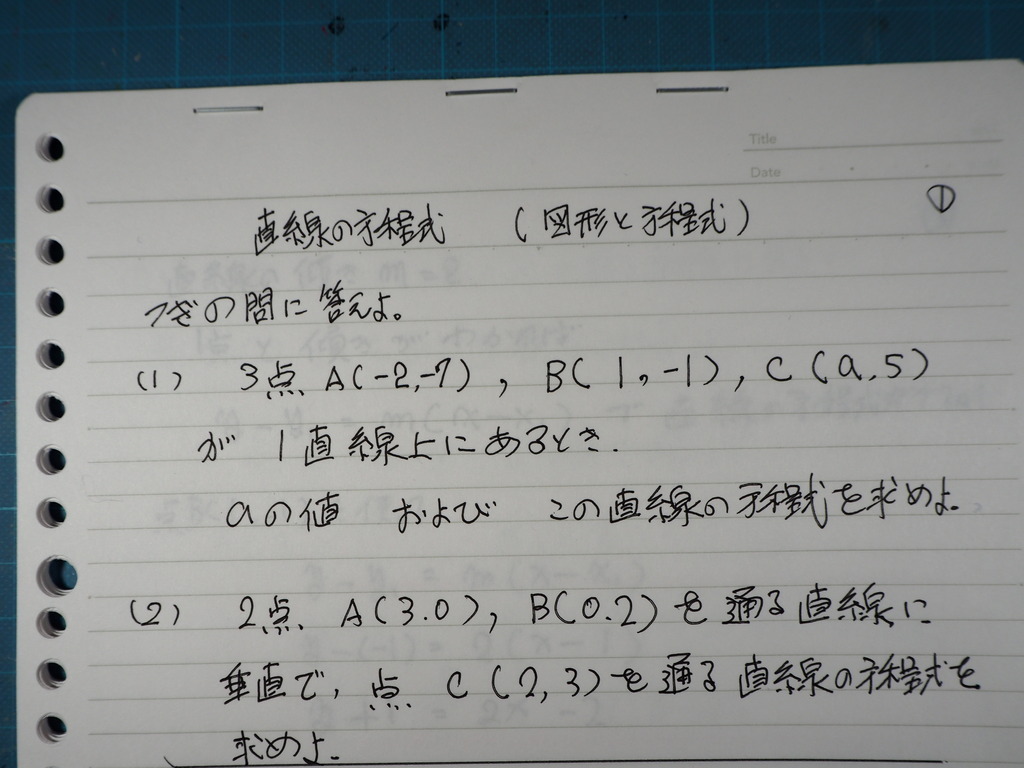 Title
Date
①
直線の方程式 (図形と方程式)
つぎの問に答えよ。
(1) 3点 A(-2,-7), B(1,-1), C(a,5)
が 1直線上にあるとき.
aの値 および この直線の方程式を求めよ.
(2) 2点 A(3.0), B(0.2)を通る直線に
垂直で, 点 C(2,3)を通る直線の方程式を
求めよ.